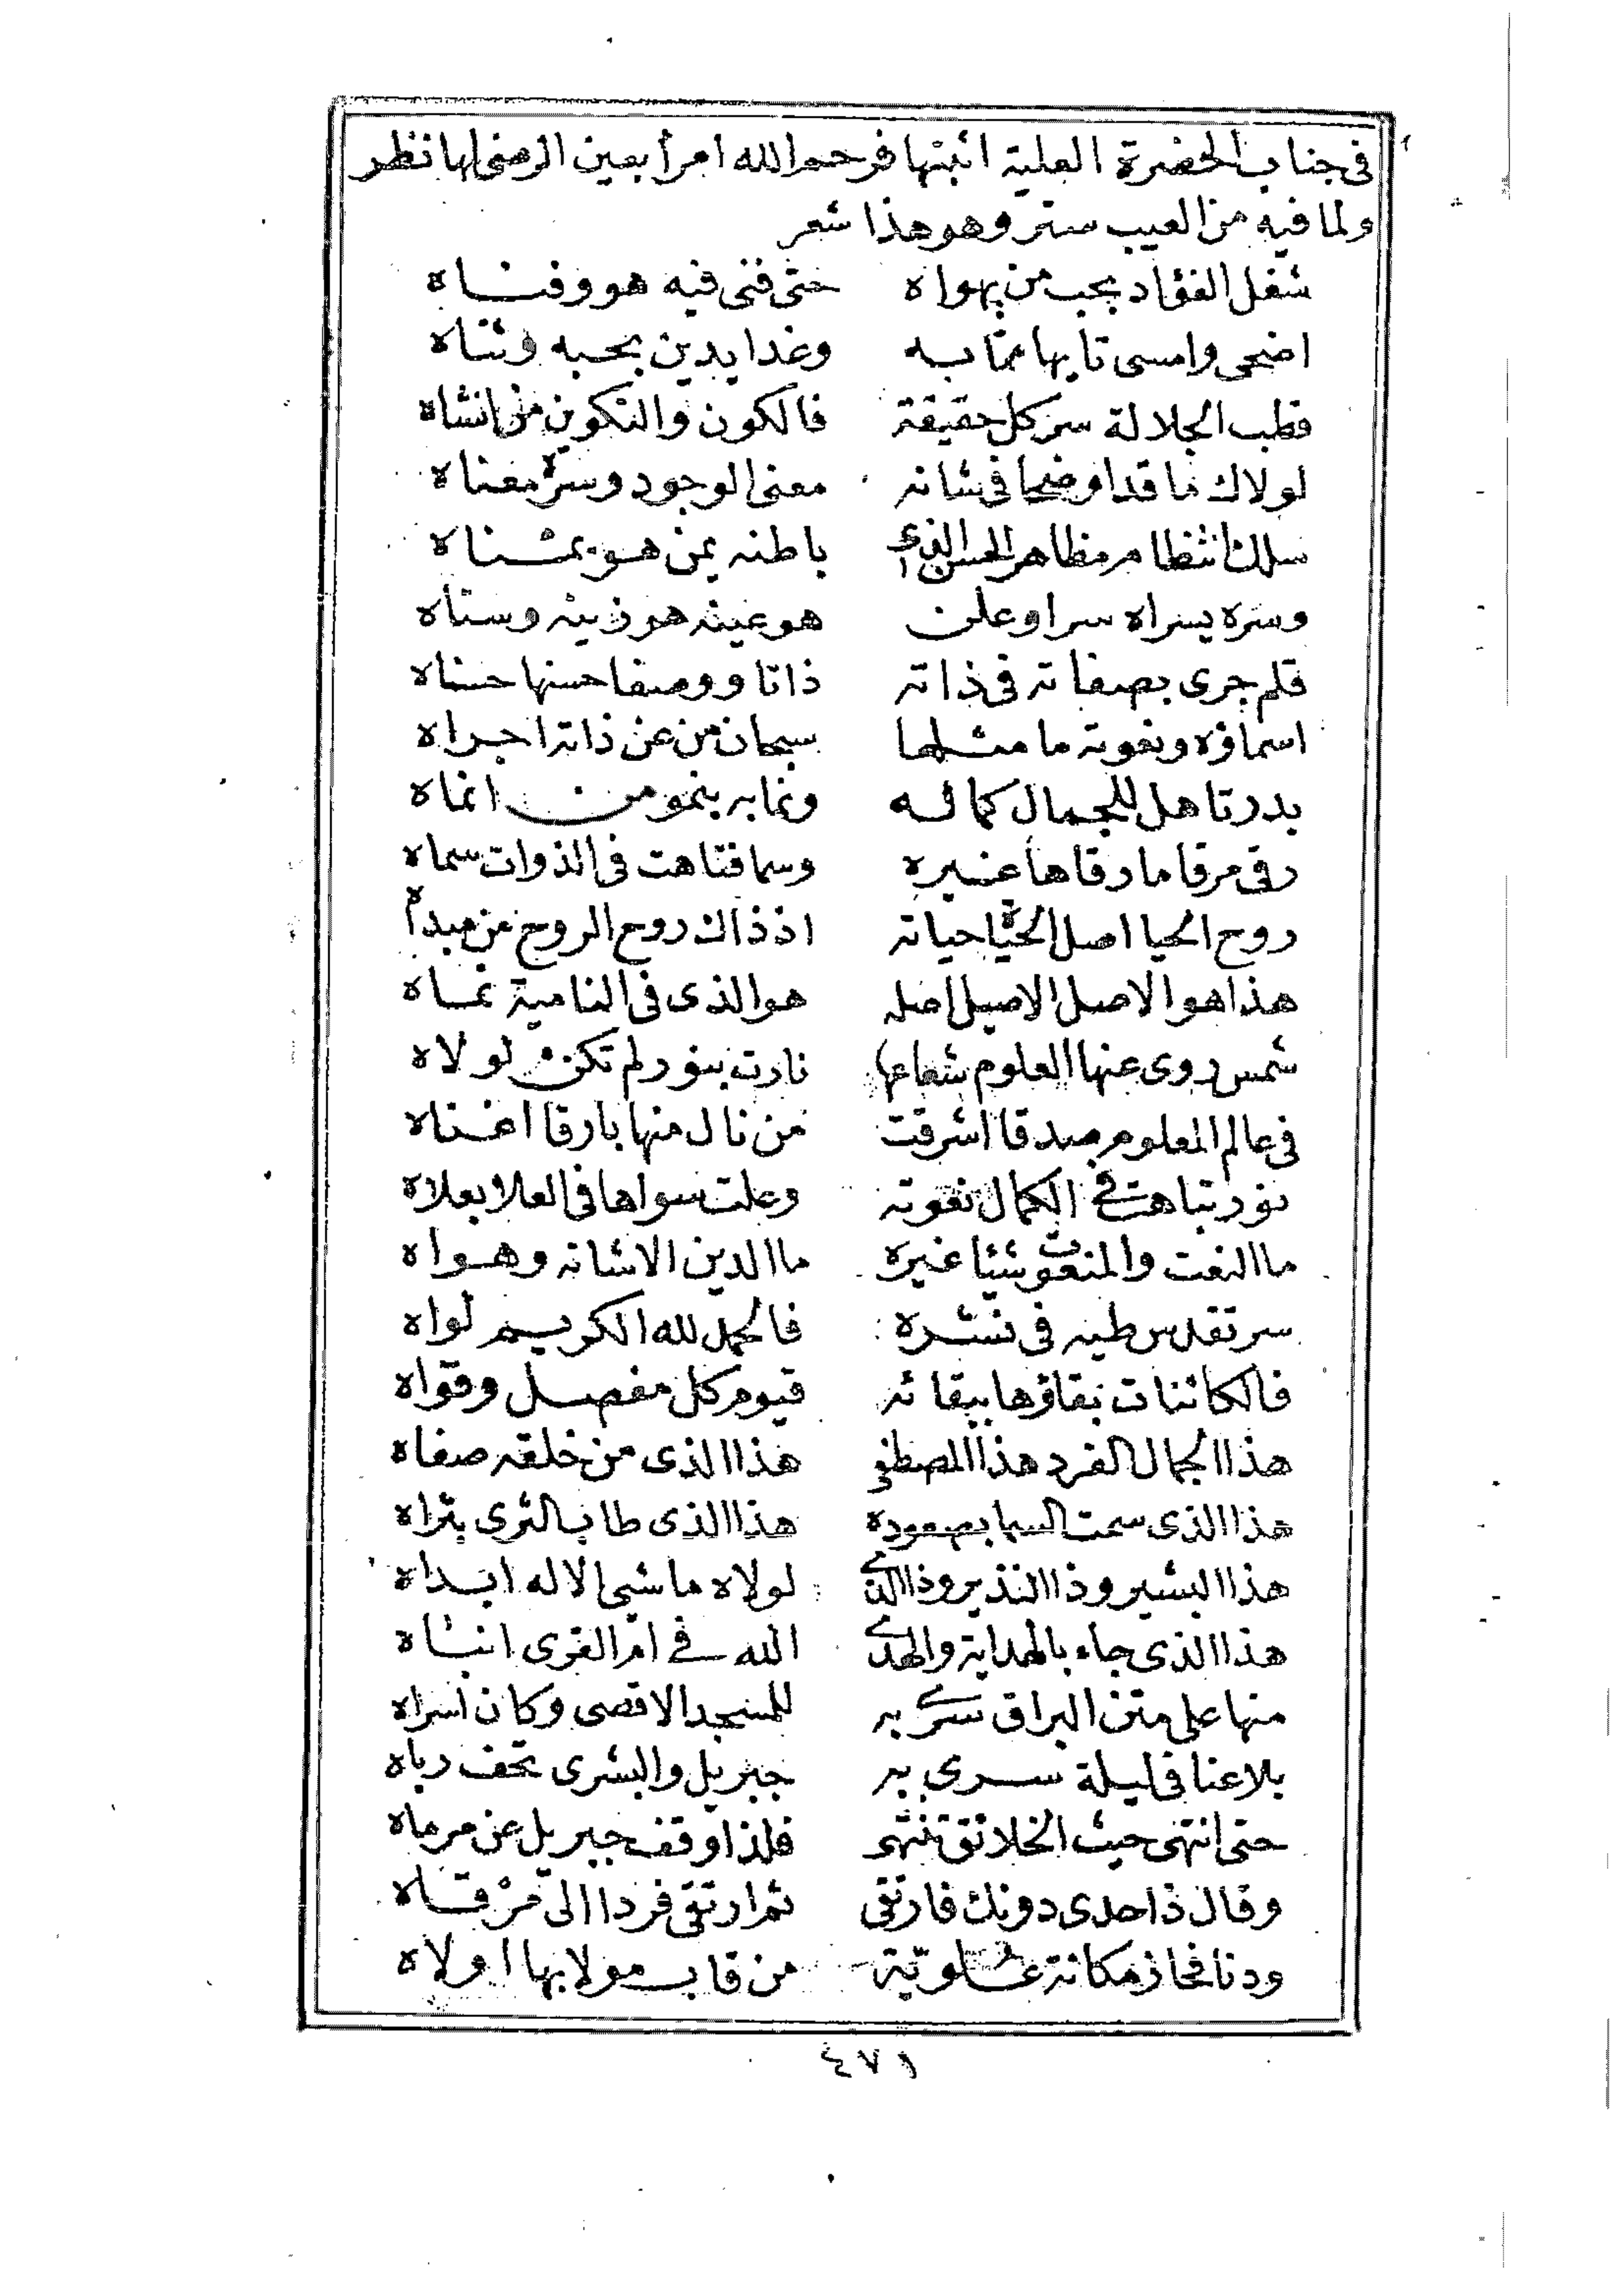 في جناب الحضرة العلية اثبتها فرحم الله امرأ بعين الرضى لها نظر
ولما فيه من العيب ستر وهو هذا شعر
شغل الفؤاد بحب من يهواه حتى فنى فيه هو وفناه
اضحى وامسى تايها عما به وغدا يدين بحبه وثناه
قطب الجلالة سر كل حقيقة فالكون والتكوين من انشاه
لولاك ما قد اوضحا في شانه معنى الوجود وسره معناه
سلك انتظام مظاهر الحسن الذي باطنه يمن هو يمناه
وسره يسراه سرا وعلن هو عينه هو زينه وسناه
قلم جرى بصفاته في ذاته ذاتا ووصفا حسنها حسناه
اسماؤه ونعوته ما مثلها سبحان من عن ذاته اجراه
بدر تاهل للجمال كما له ونما به ينمو من انماه
رقى مرقا ما رقاها غيره وسما فتاهت في الذوات سماه
روح الحيا اصل الحياة حياته اذ ذاك روح الروح عن مبداه
هذا هو الاصل الاصيل اصله هو الذي في النامية نماه
شمس روى عنها العلوم شعاعها نارت بنور لم تكن لولاه
في عالم المعلوم صدقا اشرقت من نال منها بارقا اغناه
نور تباهت في الكمال نعوته وعلت سواها في العلا بعلاه
ما النعت والمنعوت شيئا غيره ما الدين الا شانه وهواه
سر تقدس طيه في نشره فالحمد لله الكريم لواه
فالكائنات بقاؤها ببقائه قيوم كل مفصل وقواه
هذا الجمال الفرد هذا المصطفى هذا الذي من خلقه صفاه
هذا الذي سمت السما بصعوده هذا الذي طاب الثرى بثراه
هذا البشير وذا النذير وذا الذي لولاه ما شيئ الاله ابداه
هذا الذي جاء بالهداية والهدى الله في ام القرى انباه
منها على متن البراق سرى به للمسجد الاقصى وكان اسراه
بلا عنا في ليلة سرى به جبريل والبشرى تحف رباه
حتى انتهى حيث الخلائق تنتهى فلذا وقف جبريل عن مرماه
وقال ذا حدى دونك فارتقى ثم ارتقى فردا الى مرقاه
ودنا فحاز مكانة علوية من قاب مولا بها اولاه
٤٧١